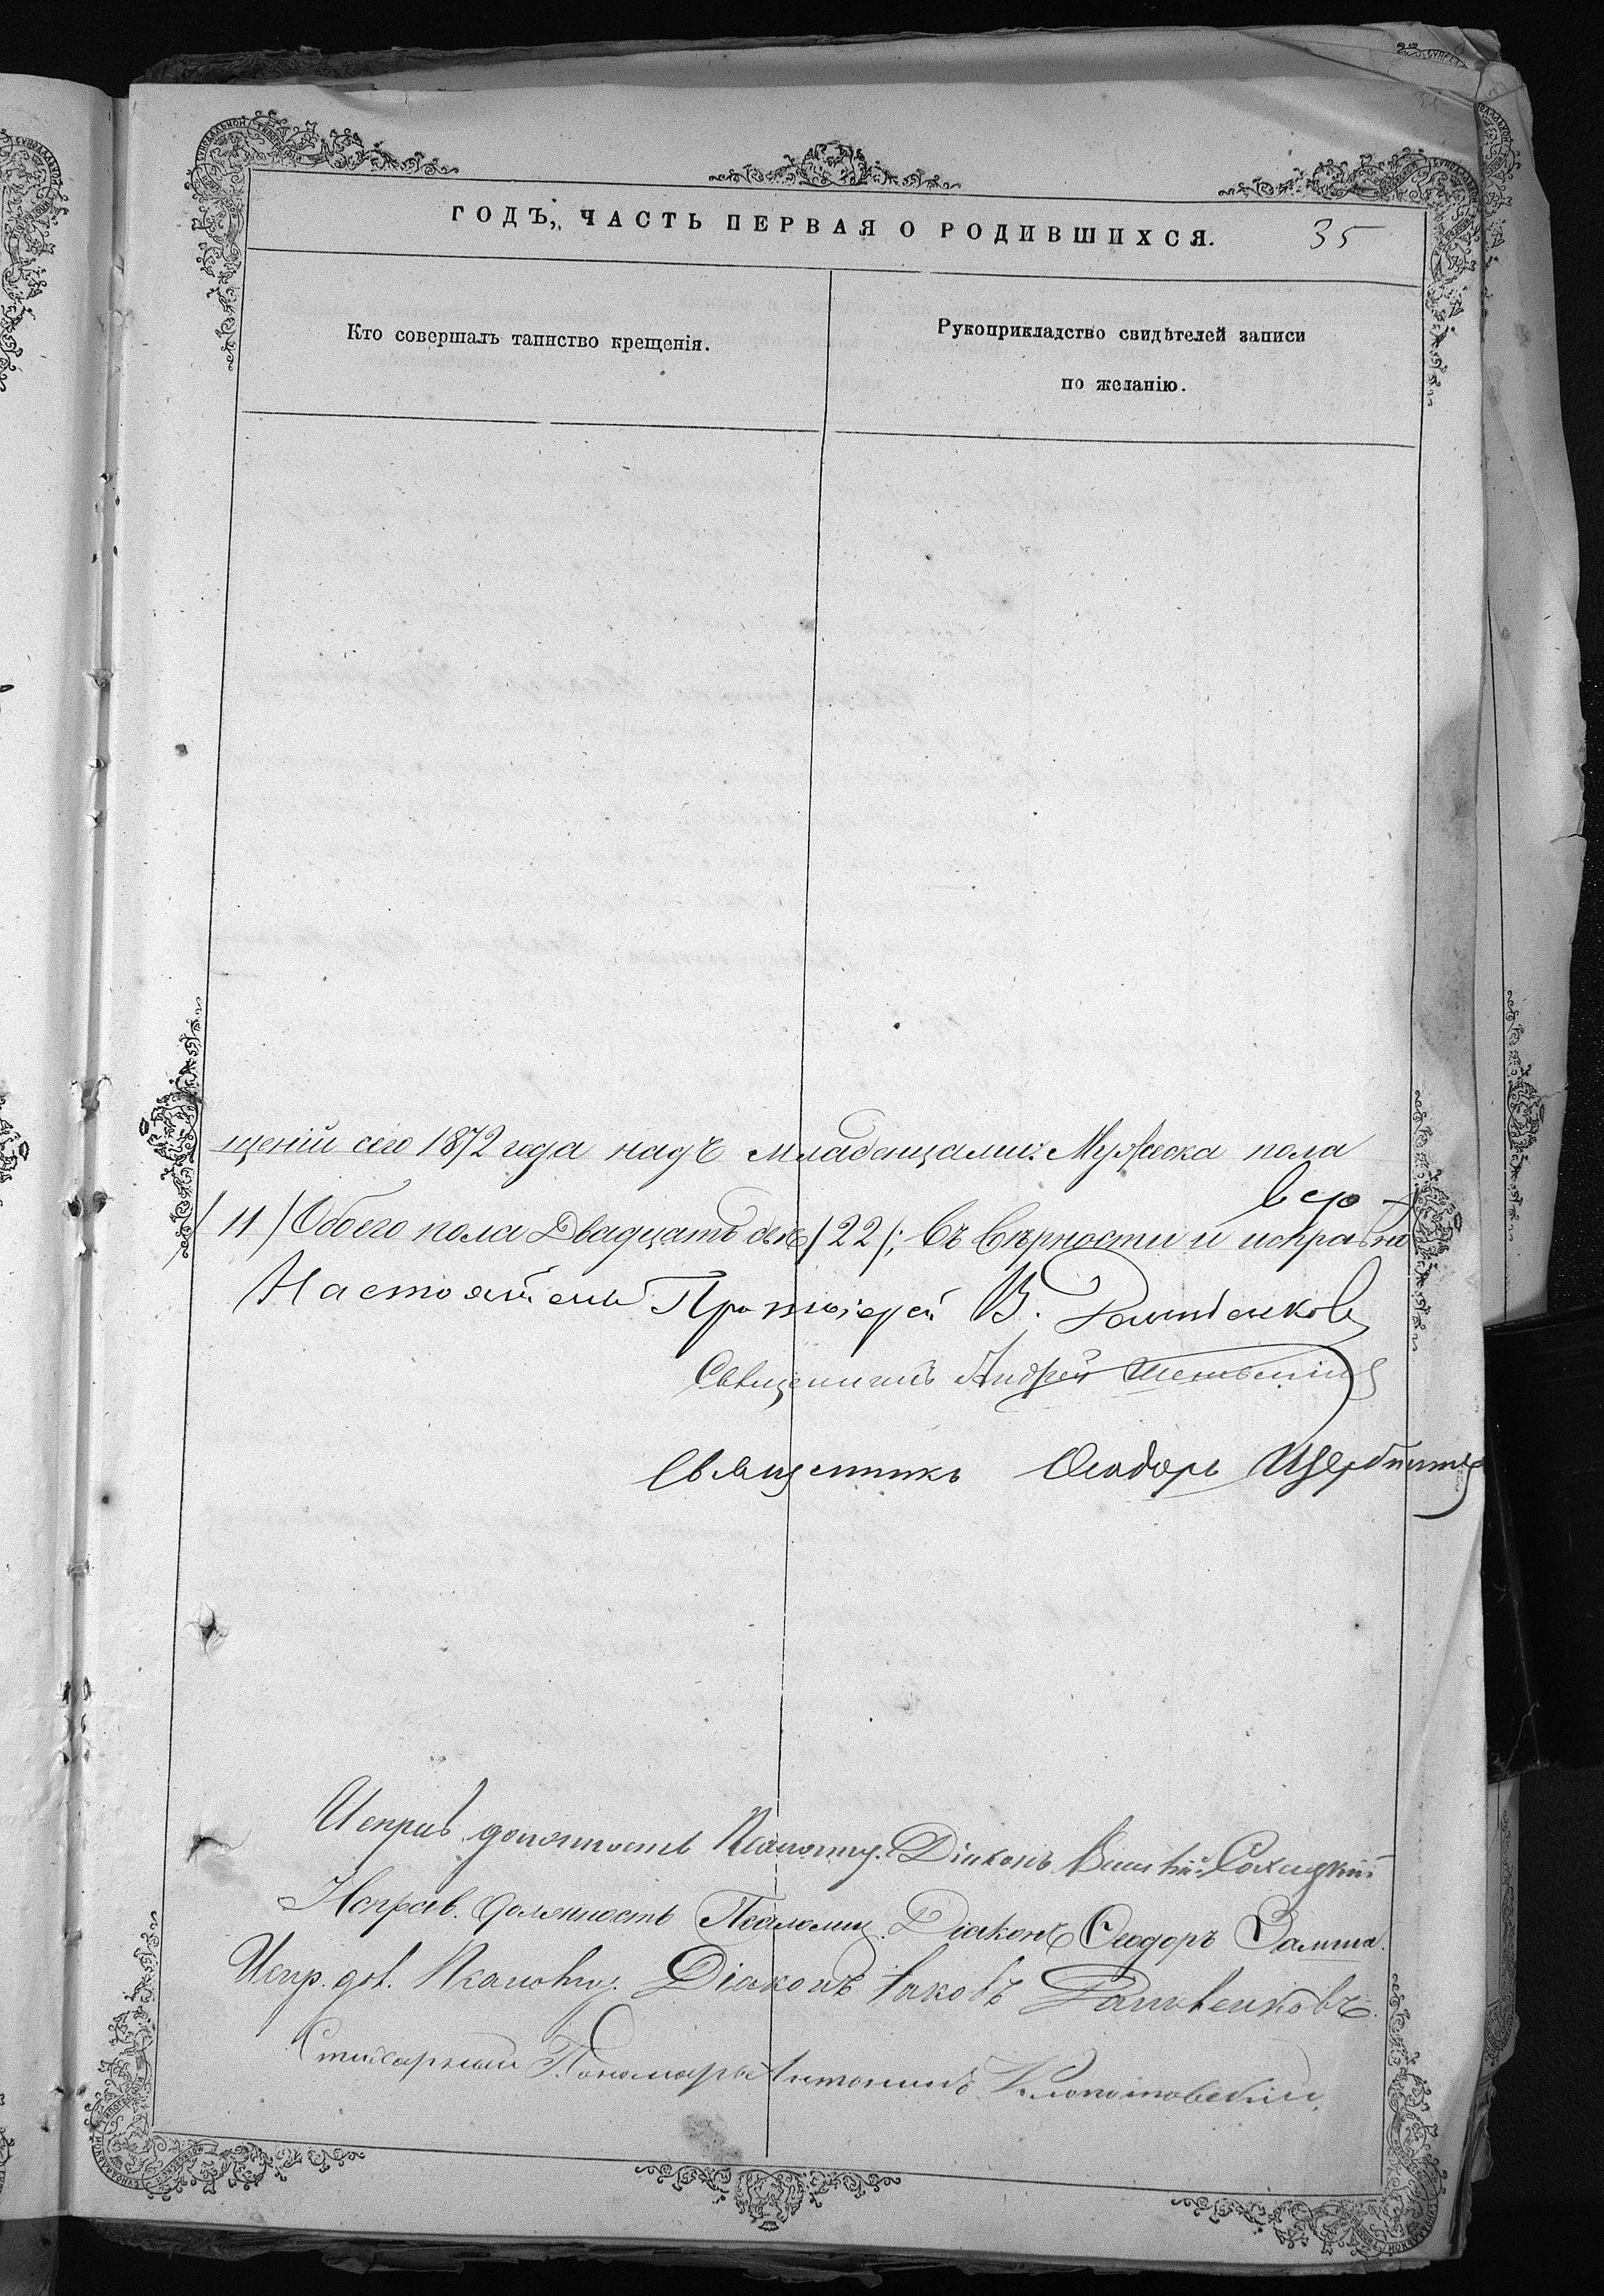 ГОДЪ, ЧАСТЬ ПЕРВАЯ О РОДИВШИХСЯ. 35
Кто совершалъ таинство крещенія.
Рукоприкладство свидѣтелей записи
по желанію.
щеній сего 1872 года надъ младенцами: Мужеска пола
/ 11 / Обоего пола Двадцать два / 22 /; Въ вѣрности и исправно
Протоіерей В.
Священникъ Андрей
Священникъ Ѳеодоръ
Исправ. должность Псаломщ. Діаконъ
Исправ. должность Псаломщ. Діаконъ Ѳеодоръ
Испр. дол. Псаломщ. Діаконъ Іаковъ
Стихарный Пономарь Антонинъ Клопотовскій